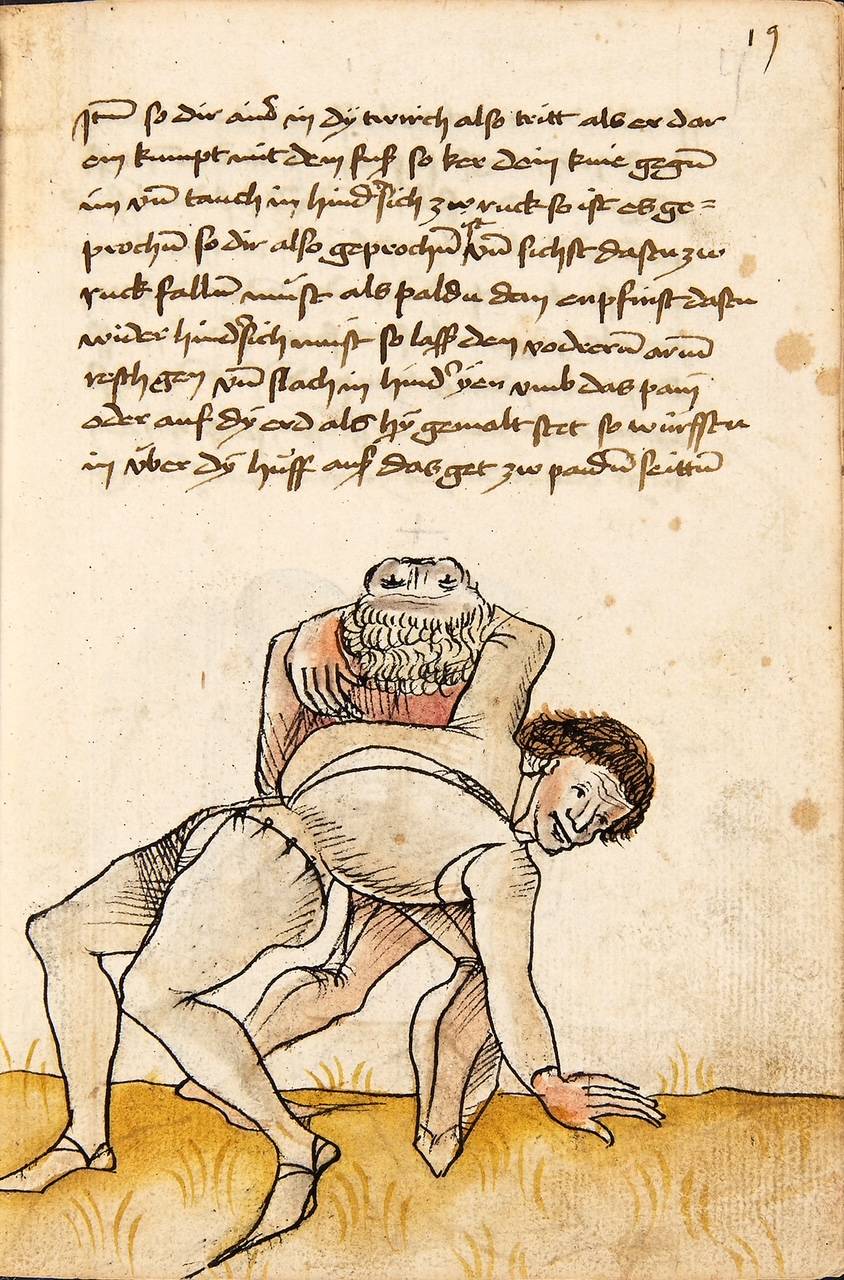 19
Itm̄ so dir ainer in dy twirch also tritt als er dar
ein kumpt mit dem fuß so ker dein knie gegn̄
im vn̄ tauch in hindersich zw ruck so ist es ge=
prochn̄ so dir also geprochn̄ ist vn̄ sichst dastu zw
ruck falln̄ must als paldu dan enpfinst dastu
wider hindersich must so laß den vodern̄ arm̄
resch gen vn̄ slach in hinder yen vmb das pain
oder auf dy erd als hy gemalt stet so würffstu
in über dy huff auß das get zw paidn̄ seittn̄